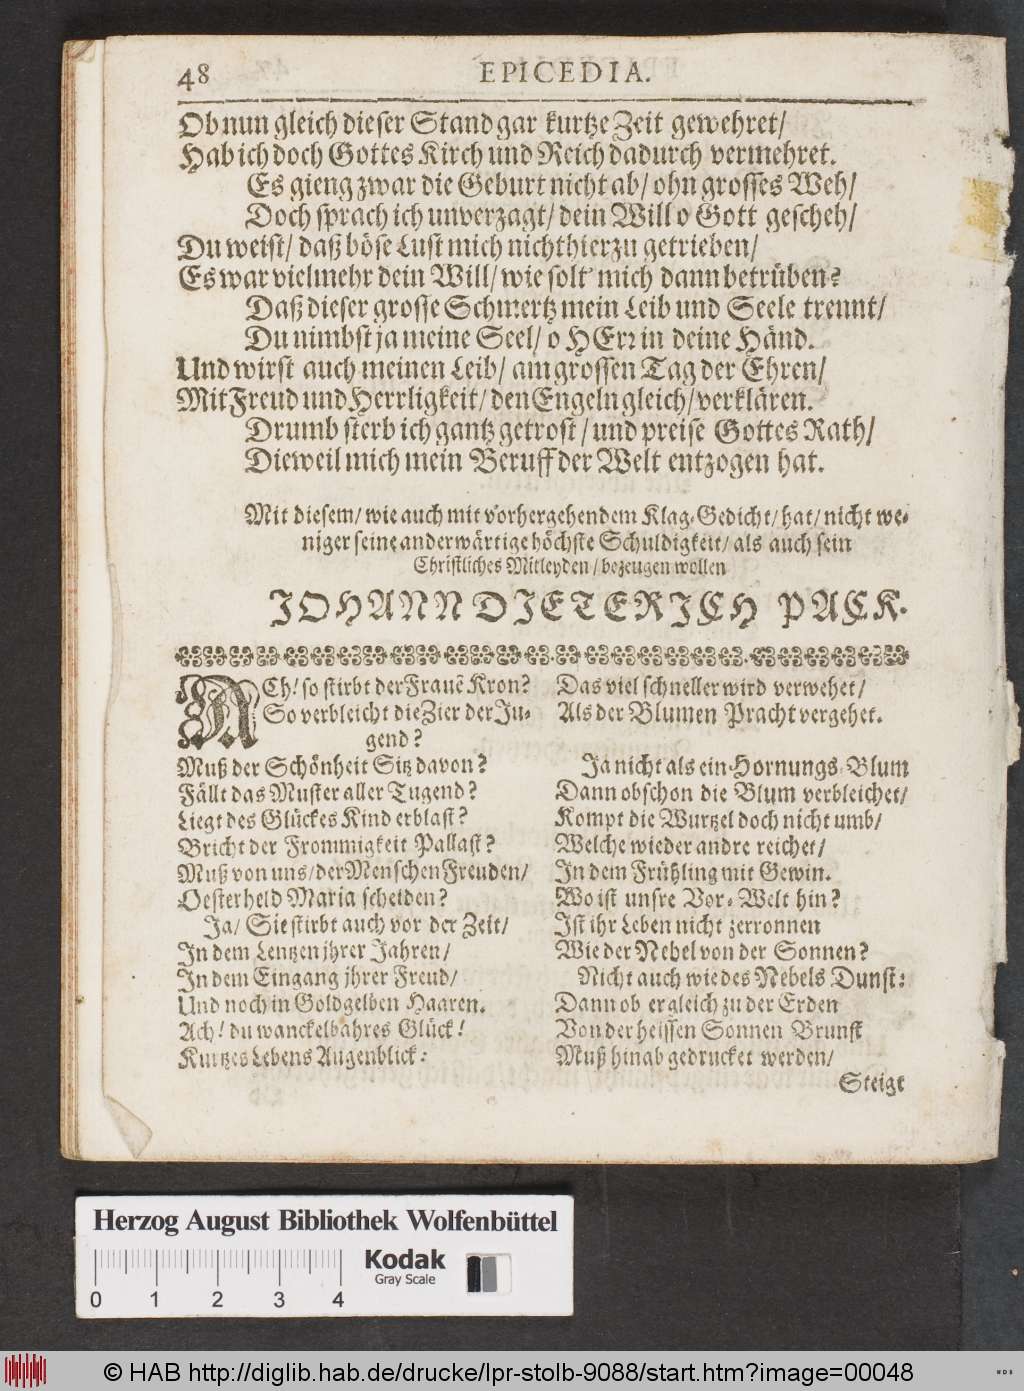 48 EPICEDIA.
Ob nun gleich dieser Stand gar kurtze Zeit gewehret/
Hab ich doch Gottes Kirch und Reich dadurch vermehret.
Es gieng zwar die Geburt nicht ab/ ohn grosses Weh/
Doch sprach ich unverzagt/ dein Will o Gott gescheh/
Du weist/ daß böse Lust mich nicht hierzu getrieben/
Es war vielmehr dein Will/ wie solt' mich dann betrüben?
Daß dieser grosse Schmertz mein Leib und Seele trennt/
Du nimbst ja meine Seel/ o HErr in deine Händ.
Und wirst auch meinen Leib/ am grossen Tag der Ehren/
Mit Freud und Herrligkeit/ den Engeln gleich/ verklären.
Drumb sterb ich gantz getrost/ und preise Gottes Rath/
Dieweil mich mein Beruff der Welt entzogen hat.
Mit diesem/ wie auch mit vorhergehendem Klag-Gedicht/ hat/ nicht we-
niger seine anderwärtige höchste Schuldigkeit/ als auch sein
Christliches Mitleyden/ bezeugen wollen
JOHANN DIETERICH PACK.
ACh! so stirbt der Frauē Kron?
So verbleicht die Zier der Ju-
gend?
Muß der Schönheit Sitz davon?
Fällt das Muster aller Tugend?
Liegt des Glückes Kind erblast?
Bricht der Frommigkeit Pallast?
Muß von uns/ der Menschen Freuden/
Oesterheld Maria scheiden?
Ja/ Sie stirbt auch vor der Zeit/
In dem Lentzen jhrer Jahren/
In dem Eingang jhrer Freud/
Und noch in Goldgelben Haaren.
Ach! du wanckelbahres Glück!
Kurtzes Lebens Augenblick:
Das viel schneller wird verwehet/
Als der Blumen Pracht vergehet.
Ja nicht als ein Hornungs-Blum
Dann obschon die Blum verbleichet/
Kompt die Wurtzel doch nicht umb/
Welche wieder andre reichet/
In dem Frühling mit Gewin.
Wo ist unsre Vor-Welt hin?
Ist ihr Leben nicht zerronnen
Wie der Nebel von der Sonnen?
Nicht auch wie des Nebels Dunst:
Dann ob er gleich zu der Erden
Von der heissen Sonnen Brunst
Muß hinab gedrucket werden/
Steigt
Herzog August Bibliothek Wolfenbüttel
Kodak
Gray Scale
0 1 2 3 4
© HAB http://diglib.hab.de/drucke/lpr-stolb-9088/start.htm?image=00048